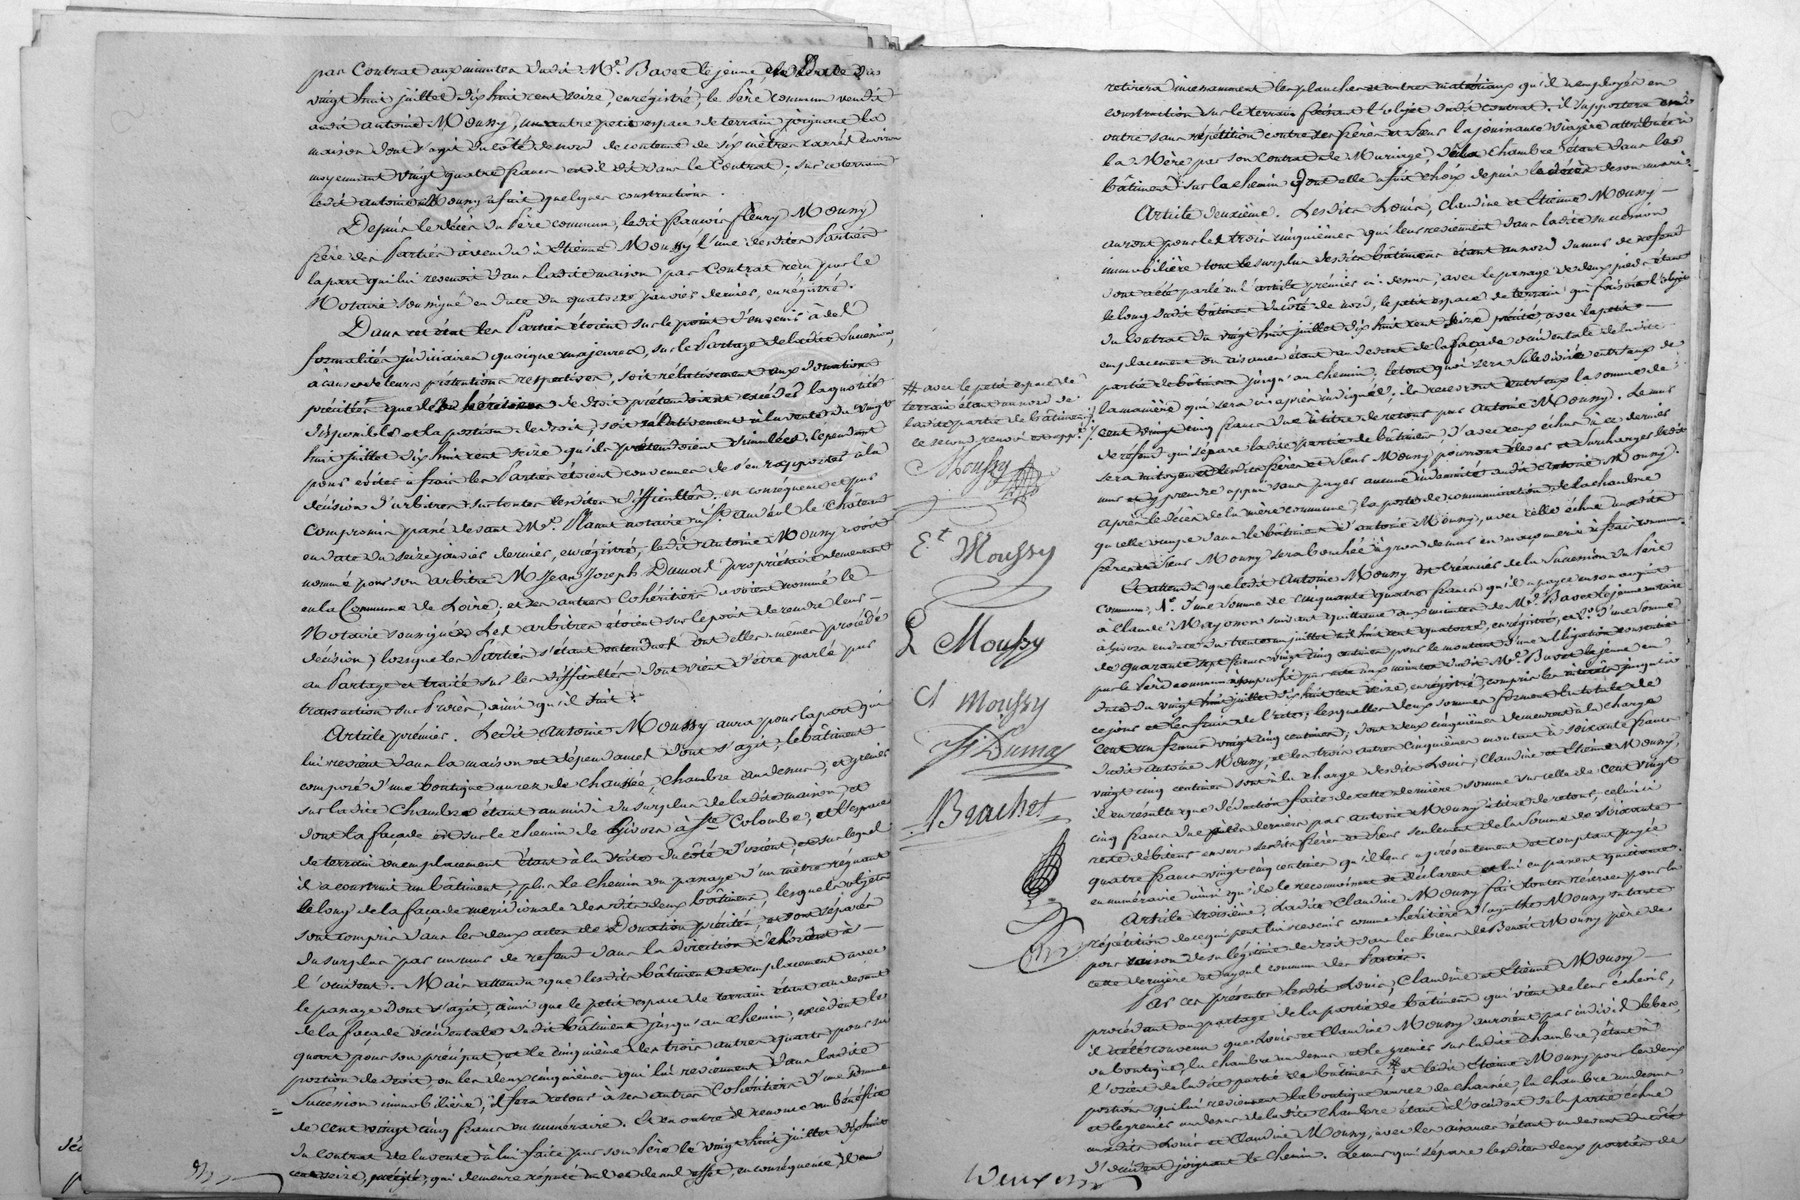 par Contrat aux minutes dudit Me. Bavet le jeune, en date du
vingt huit juillet dix huit cent seize, enregistré, le Père commun vendit
audit antoine Moussy, un autre petit espace de terrain joignant la
maison dont s'agit du côté de nord de contenue de six mètres carrés environ
moyennant vingt quatre francs est-il dit dans le Contrat; sur ce terrain
ledit antoine Moussy a fait quelques constructions.
Depuis le décès du Père commun, ledit françois fleury Moussy
frère des Parties a vendu à Etienne Moussy l'une desdites Parties
la part qui lui revenoit dans ladite maison par Contrat reçu par le
Notaire soussigné en date du quatorze janvier dernier, enregistré.
Dans cet état les Parties étoient sur le point d'en venir à des
formalités judiciaires quoique majeures, sur le Partage de ladite succession,
à cause de leurs prétentions respectives, soit relativement aux donations
précitées que les héritiers de droit prétendoient excéder la quotité
disponible et la portion de droit, soit relativement à la vente du vingt
huit juillet dix huit cent seize qu'ils prétendoient simulées. Cependant
pour éviter à frais les Parties étoient convenues de s'en rapporter à la
décision d'arbitres sur toutes lesdites difficultés. en conséquence et par
Compromis passé devant Me. Plaut notaire à St. andéol le Château
en date du seize janvier dernier, enregistré, ledit antoine Moussy avoit
nommé pour son arbitre M. Jean Joseph Dumas propriétaire demeurant
en la Commune de Loire; et les autres Cohéritiers avoient nommé le
Notaire soussigné. Les arbitres étoient sur le point de rendre leur
décision, lorsque les Parties s'étant entendues ont elles-mêmes procédé
au Partage et traité sur les difficultés dont vient d'être parlé par
transaction sur Procès, ainsi qu'il suit:
Article premier. Ledit antoine Moussy aura pour la part qui
lui revient dans la maison et dépendances dont s'agit, le bâtiment
composé d'une boutique au rez de chaussée, chambre au dessus, et grenier
sur ladite Chambre étant au midi du surplus de ladite maison, et
dont la façade est sur le chemin de Givors à Ste Colombe, et l'espace
de terrain ou emplacement étant à la droite du côté d'orient, et sur lequel
il a construit un bâtiment, plus le chemin ou passage d'un mètre régnant
le long de la façade méridionale desdits deux bâtimens, lesquels objets
sont compris dans les deux actes de Donation précités, et sont séparés
du surplus par un mur de refend dans la direction d'orient à
l'occident. Mais attendu que lesdits bâtiment et emplacement avec
le passage dont s'agit, ainsi que le petit espace de terrain étant au devant
de la façade occidentale dudit bâtiment jusqu'au chemin, excèdent le
quart pour son préciput, et le cinquième des trois autres quarts pour sa
portion de droit, ou les deux cinquièmes qui lui reviennent dans ladite
Succession immobilière, il fera retour à ses autres Cohéritiers d'une somme
de cent vingt cinq francs en numéraire. Et en outre il renonce au bénéfice
du contrat de la vente à lui faite par son Père le vingt huit juillet dix huit
cent seize, précité, qui demeure réputé nul et de nul effet, en conséquence, il en
retirera incessamment les planches et autres matériaux qu'il a employés en
construction sur le terrain faisant l'objet dudit contrat. il supportera en
outre sans répétition contre ses frères et sœur la jouissance viagère attribuée à
la Mère par son Contrat de Mariage, de la Chambre étant dans les
bâtimens sur le chemin, dont elle a fait choix depuis le décès de son mari.
Article deuxième. Lesdits Louis, Claudine et Etienne Moussy
auront pour les trois cinquièmes qui leur reviennent dans ladite succession
immobilière tout le surplus desdits bâtimens étant au nord du mur de refend
dont a été parlé en l'article premier ci-dessus, avec le passage de deux pieds étant
le long dudit bâtiment du côté de nord, le petit espace de terrain qui faisoit l'objet
du Contrat du vingt huit juillet dix huit cent seize précité, avec la petite
emplacement ou aisances étant au devant de la façade occidentale de ladite
partie de bâtimens jusqu'au chemin, le tout quoi sera subdivisé entr'eux de
la manière qui sera ci-après indiquée; ils recevront entr'eux la somme de
cent vingt cinq francs due à titre de retour par antoine Moussy. Le mur
de refend qui sépare ladite partie de bâtimens, d'avec ceux échus à ce dernier
sera mitoyen et lesdits frères et sœur Moussy pourront élever et surcharger ledit
mur et y prendre appui sans payer aucune indemnité audit antoine Moussy.
après le décès de la mère commune, la porte de communication de la chambre
qu'elle occupe dans le bâtiment d'antoine Moussy, avec celle échue auxdits
frères et sœur Moussy sera bouchée à gros de mur en maçonnerie à frais communs.
Et attendu que ledit Antoine Moussy est créancier de la Succession du Père
commun, 1°. d'une somme de cinquante quatre francs qu'il a payée en son acquit
à Claude Mazonon suivant quittance aux minutes de Me. Bavet le jeune notaire
à Givors en date du trente un juillet dix huit cent quatorze, enregistrée, et 2°. d'une somme
de quarante sept francs vingt cinq centimes pour le montant d'une obligation consentie
par le Père commun à son profit par acte aux minutes dudit Me. Bavet le jeune en
date du vingt huit juillet dix huit cent seize, enregistré, compris les intérêts jusqu'à
ce jour et les frais de l'acte, lesquelles deux sommes forment la totale de
Cent un francs vingt cinq centimes, dont deux cinquièmes demeurent à la charge
dudit antoine Moussy, et les trois autres cinquièmes montant à soixante francs
vingt cinq centimes sont à la charge desdits Louis, Claudine et Etienne Moussy,
il en résulte que déduction faite de cette dernière somme sur celle de cent vingt
cinq francs due par antoine Moussy à titre de retour, celui-ci
reste débiteur envers lesdits frères et sœur seulement de la somme de soixante
quatre francs vingt cinq centimes qu'il leur a présentement et comptant payée
en numéraire ainsi qu'ils le reconnoissent et déclarent et lui en passent quittance.
Article troisième. Ladite Claudine Moussy fait toutes réserves pour la
répétition de ce qui peut lui revenir comme héritière d'agathe Moussy sa tante
pour raison de sa légitime de droit dans les biens de Benoît Moussy père de
cette dernière et ayeul commun des Parties.
Par ces présentes lesdits Louis, Claudine et Etienne Moussy
procédant au partage de la partie de bâtimens qui vient de leur échoir,
il a été convenu que Louis et Claudine Moussy auroient par indivis le bas
ou boutique, la chambre au dessus et le grenier sur ladite chambre, étant à
l'orient de ladite partie de bâtimens #, et ledit Etienne Moussy pour les deux
portions qui lui reviennent la boutique au rez de chaussée, la chambre au dessus
et le grenier au dessus de ladite chambre étant à l'occident de la partie échue
auxdits Louis et Claudine Moussy, avec les aisances étant au devant du côté
d'occident joignant le chemin. Le mur qui sépare lesdites deux parties de
# avec le petit espace de
terrain étant au nord de
ladite partie de bâtimens
ce second renvoi approuvé.
Moussy
Et. Moussy
L Moussy
Cl Moussy
JJ Dumas
Brachet